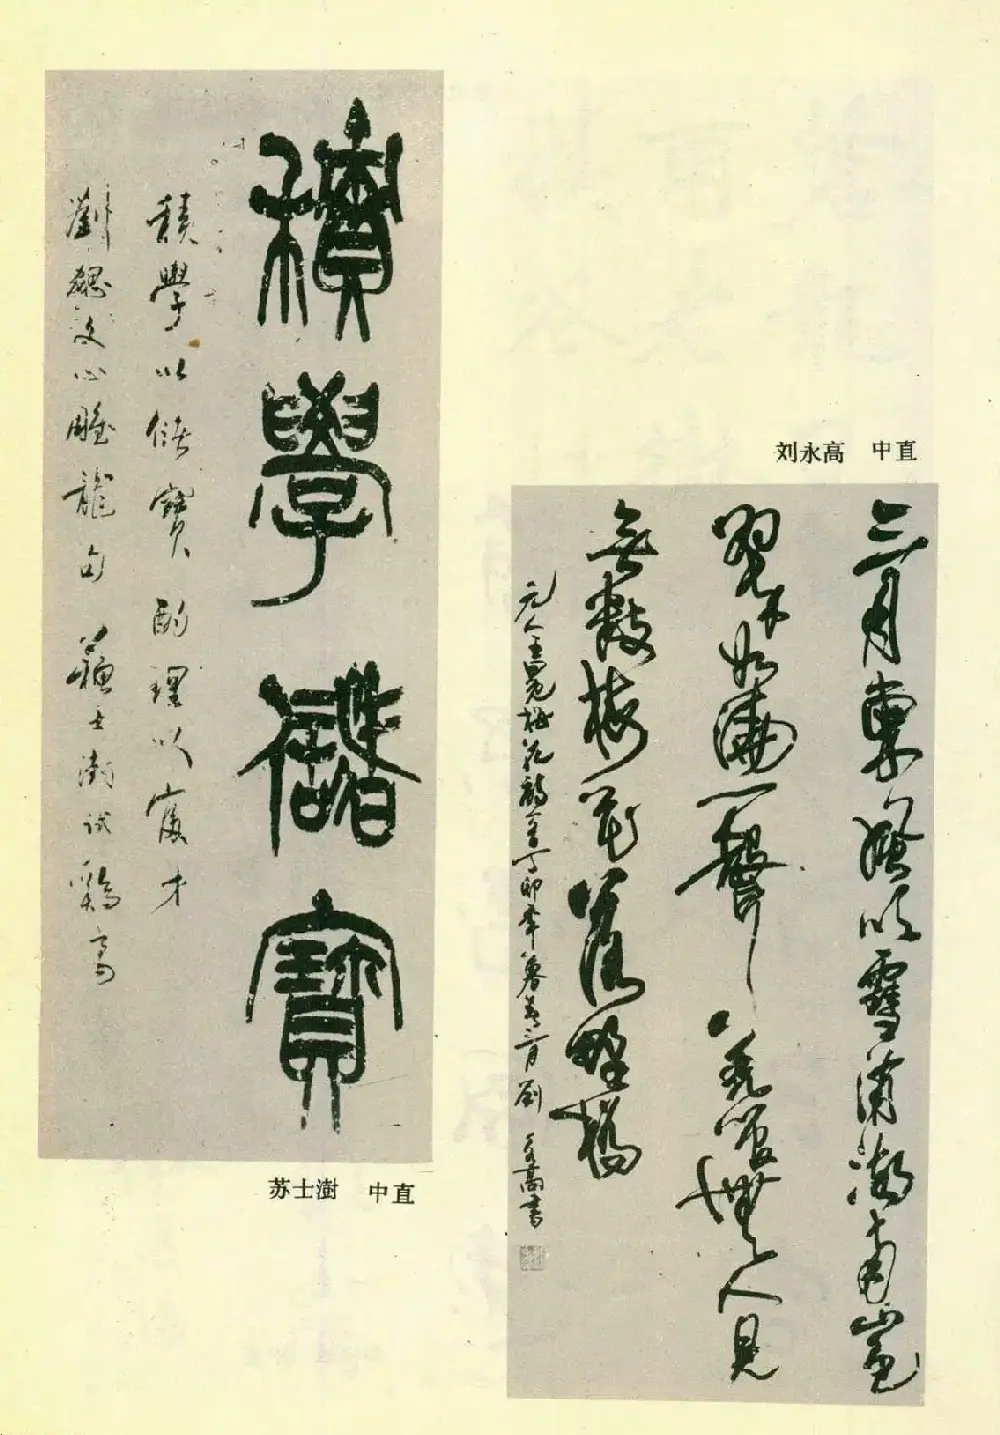 積學儲寶
積學以儲寶酌理以富才
劉勰文心雕龍句 蘇士澍試鷄毫
苏士澍 中直
刘永高 中直
三月東風吹雪消湖南山色
翠如澆一聲羌管無人見
無數梅花落野橋
元人王冕梅花丁卯年暮春二月劉永高書